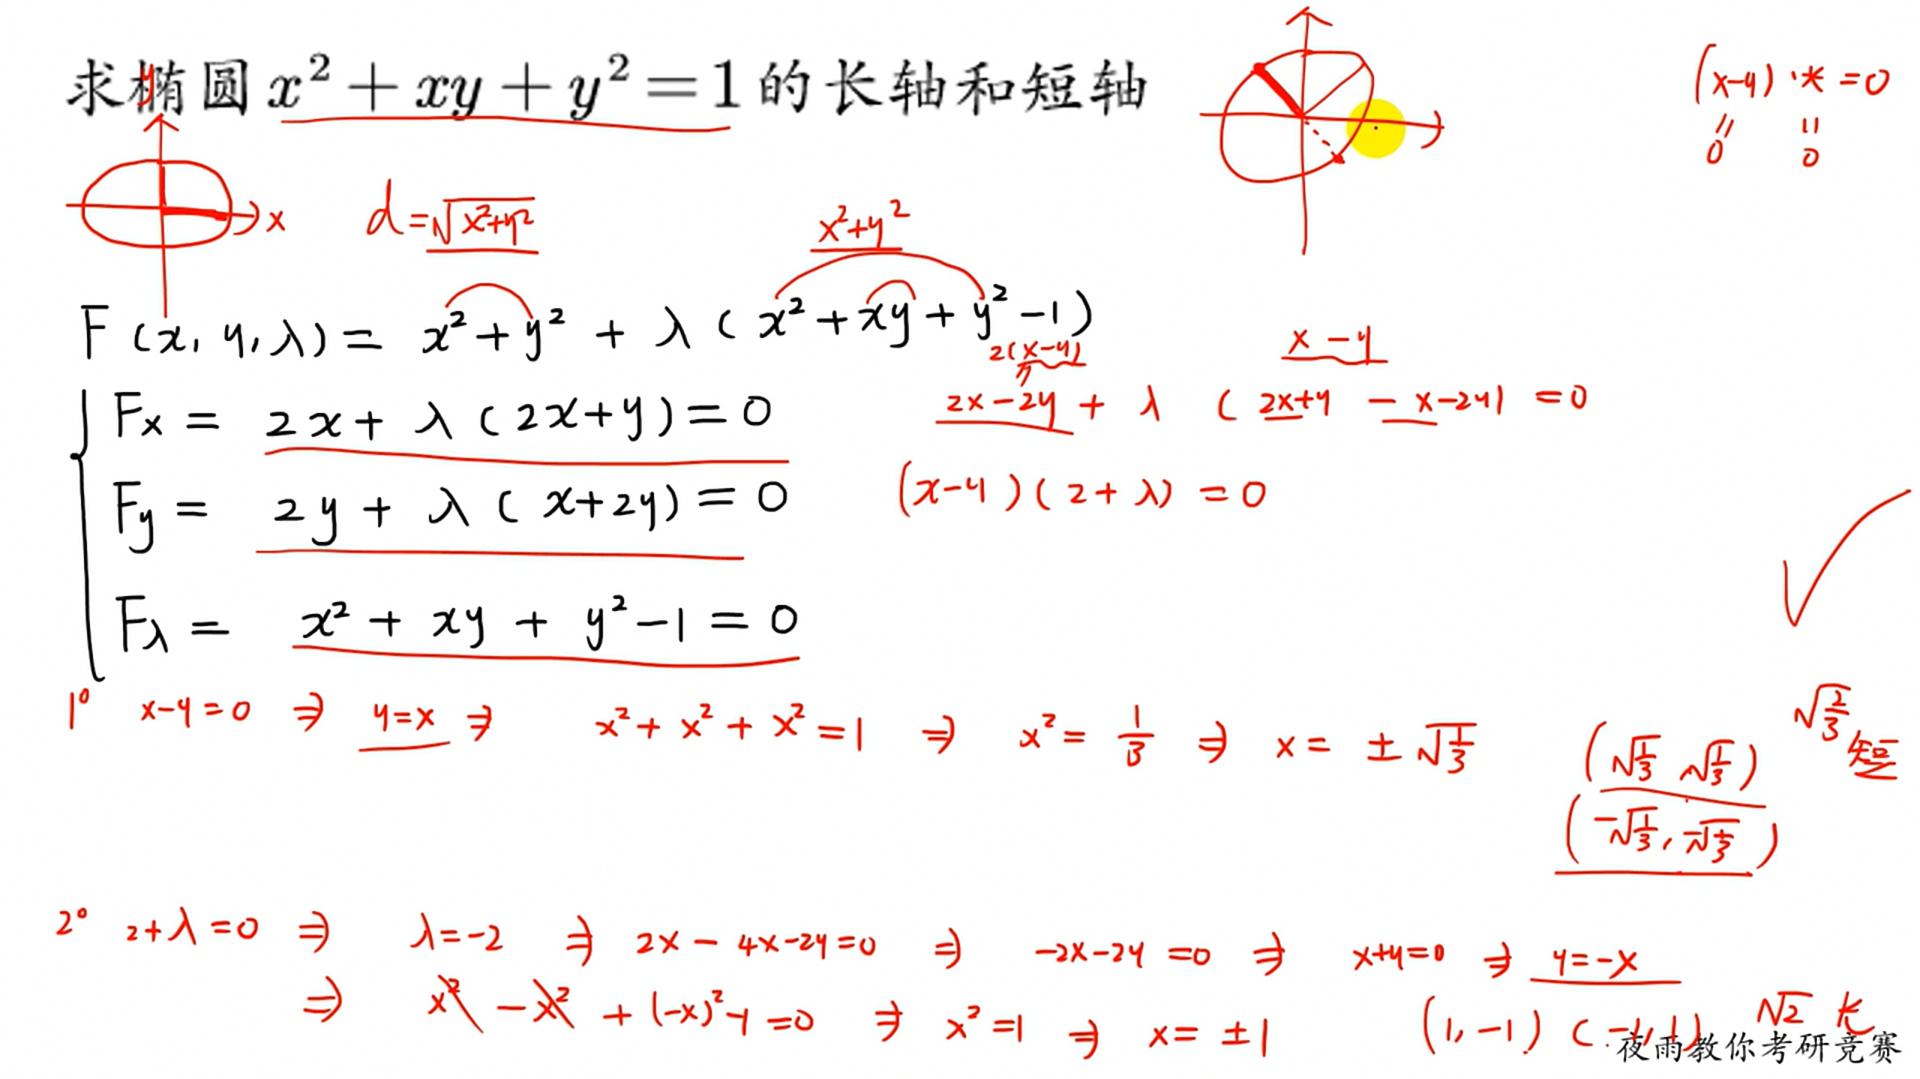 求椭圆 x² + xy + y² = 1 的长轴和短轴
(x-y)·* = 0
0 0
y
x
d = √(x²+y²)
x²+y²
F(x, y, λ) = x² + y² + λ(x² + xy + y² - 1)
2(x-y)
x-y
Fx = 2x + λ(2x+y) = 0
2x-2y + λ(2x+y -x-2y) = 0
Fy = 2y + λ(x+2y) = 0
(x-y)(2+λ) = 0
Fλ = x² + xy + y² - 1 = 0
1° x-y=0 ⇒ y=x ⇒ x² + x² + x² = 1 ⇒ x² = 1/3 ⇒ x = ±√(1/3)
(√(1/3), √(1/3))
√(2/3) 短
(-√(1/3), -√(1/3))
2° 2+λ=0 ⇒ λ=-2 ⇒ 2x-4x-2y=0 ⇒ -2x-2y=0 ⇒ x+y=0 ⇒ y=-x
⇒ x² - x² + (-x)² - 1 = 0 ⇒ x² = 1 ⇒ x = ±1
(1, -1) (-1, 1) √2 长
夜雨教你考研竞赛